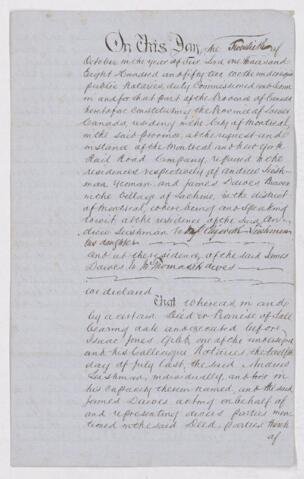 On This Day, the Twelfth of
October in the year of Our Lord one thousand
Eight Hundred and fifty two we the undersigned
public Notaries, duly Commissioned and Sworn
in and for that part of the Province of Canada
heretofore Constituting the Province of Lower
Canada, residing in the City of Montreal,
in the said province, at the request and
instance of the Montreal and New York
Rail Road Company, repaired to the
residences respectively of Andrew Leishman
yeoman and James Davies
in the Village of Lachine, in the district
of Montreal, where being and speaking
to wit at the residence of the said An-
drew Leishman to Leishman
his daughter
and at the residence, of the said James
Davies to Mr Thomas Davies
we declared
That whereas in and
by a certain Deed or Promise of Sale
bearing date and executed before
Isaac Jones Gibb, one of the undersigned
and his Colleague Notaries, the twelfth
day of July last, the said Andrew
Leishman, individually, and also in
his Capacity therein named, and the said
James Davies acting on behalf of
and representing divers parties men
tioned in the said Deed, parties thereto
of